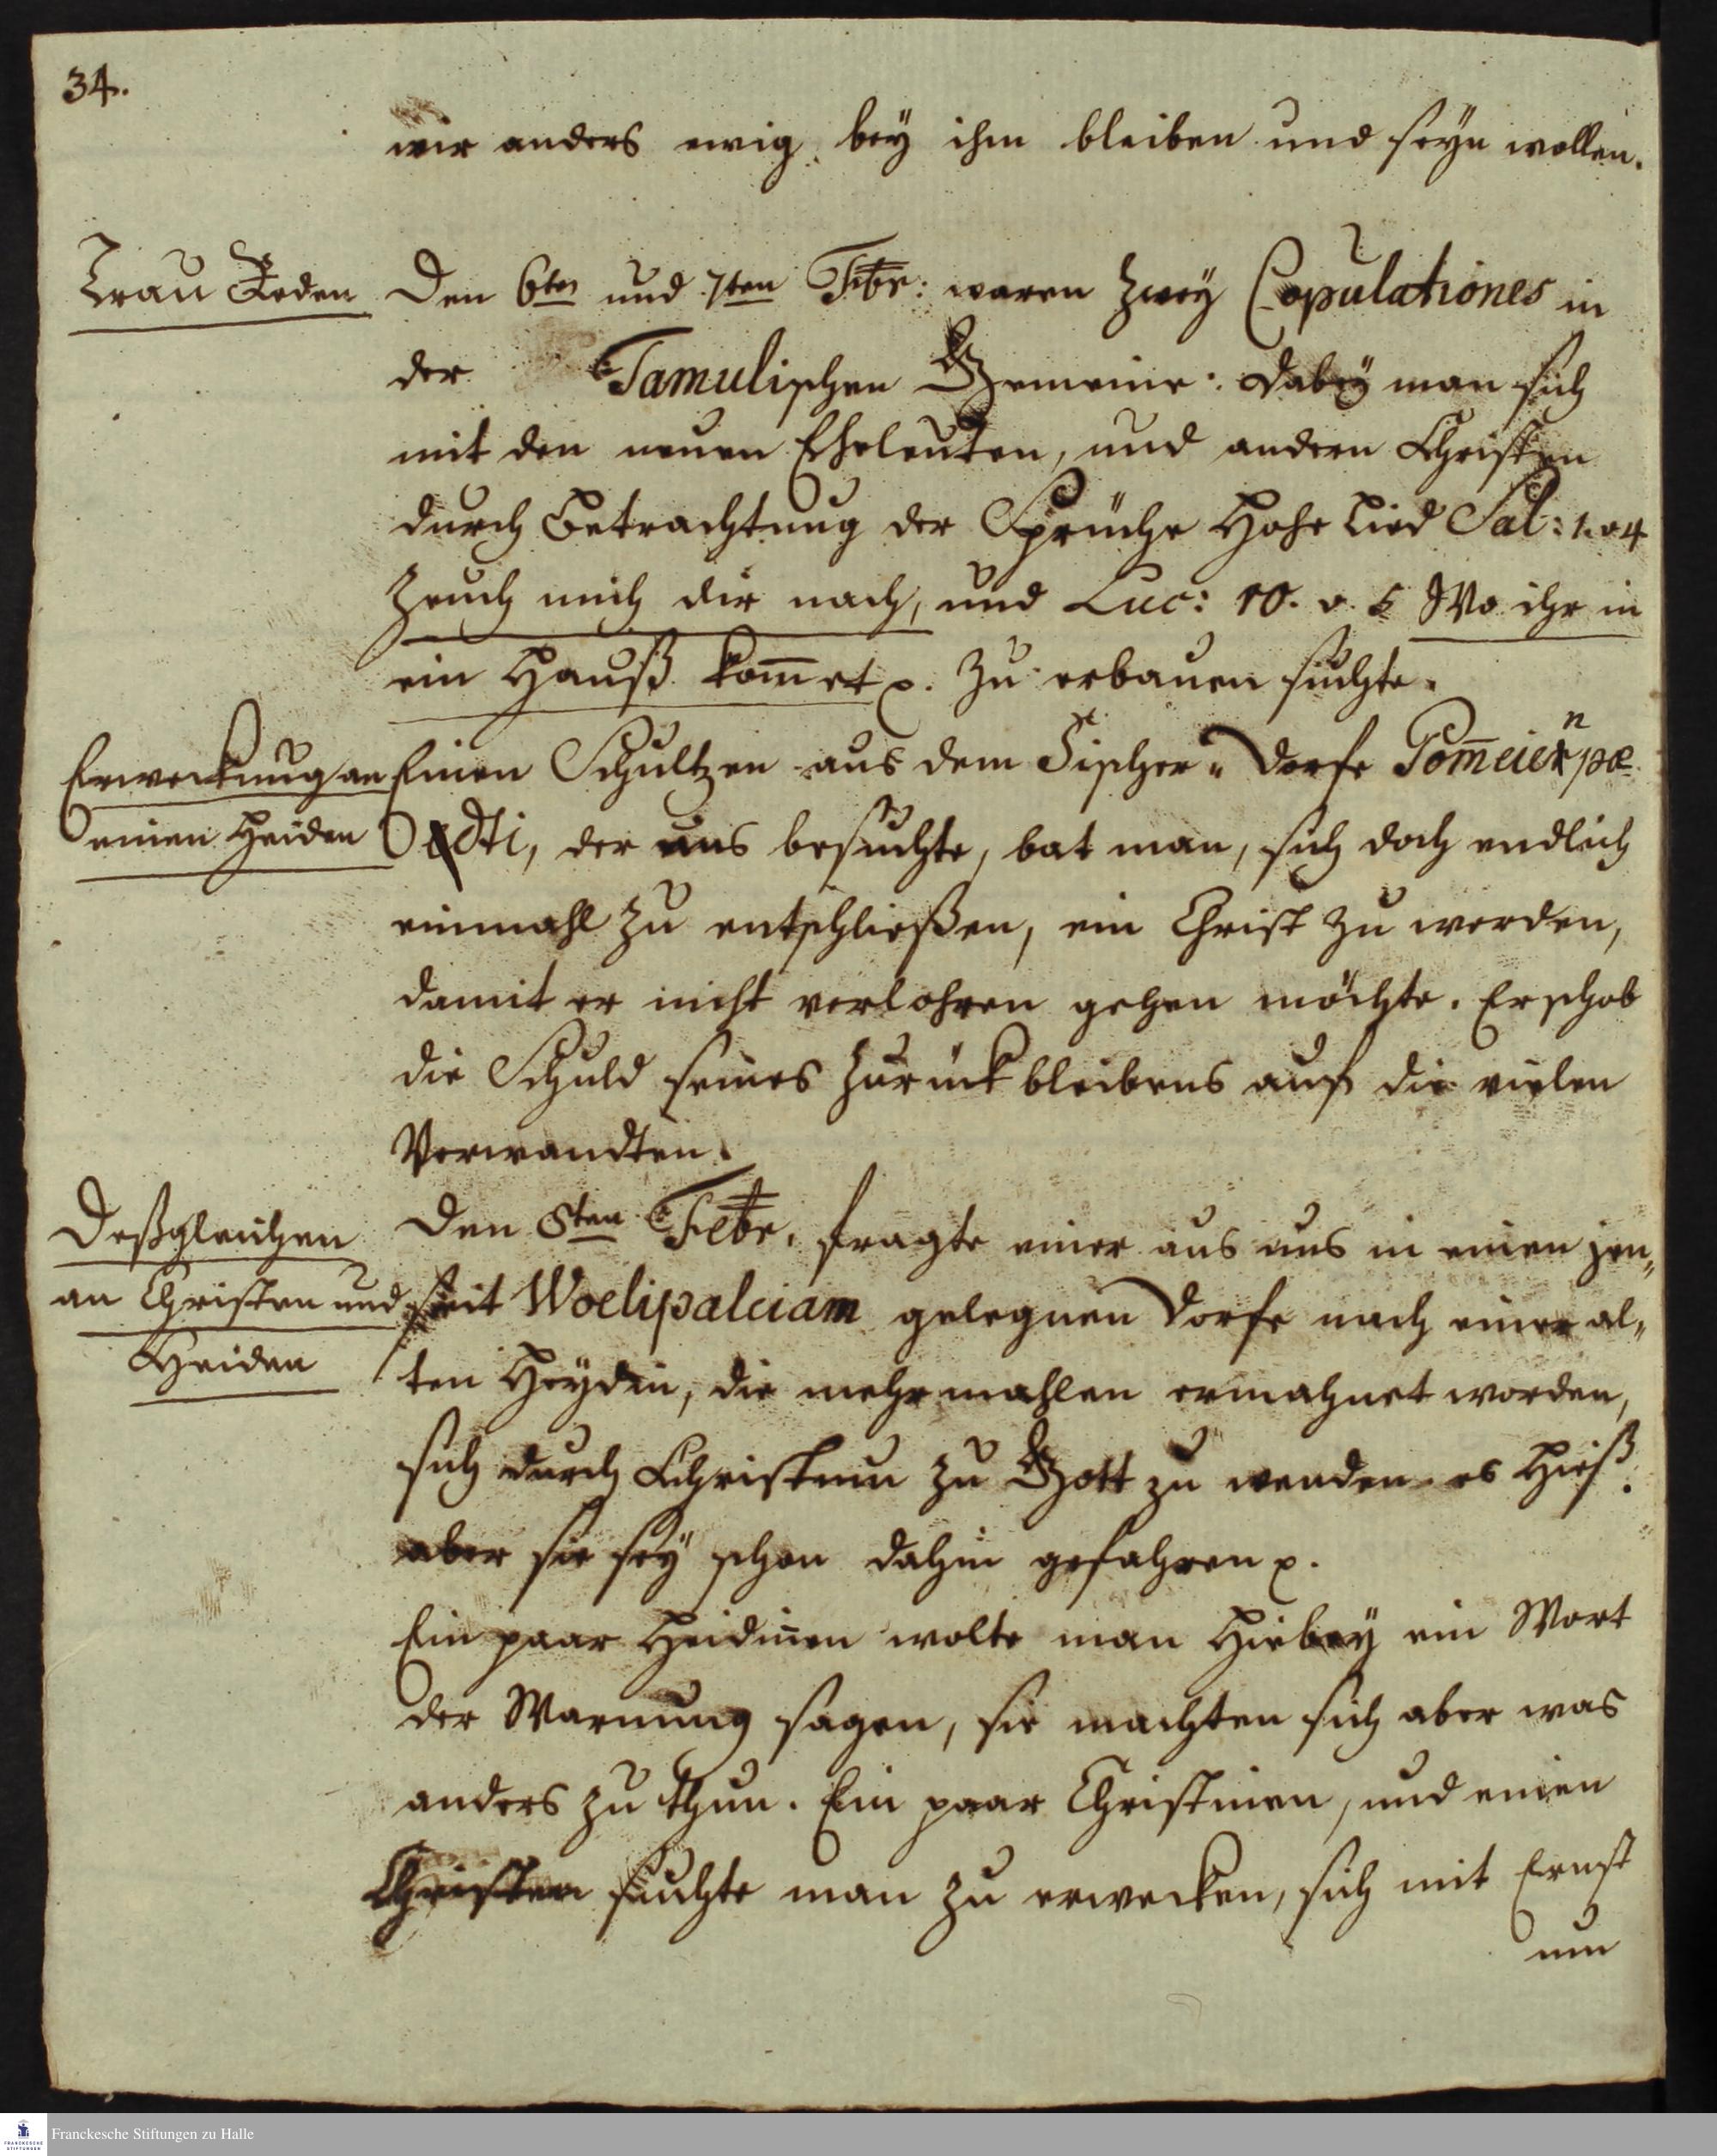 34.
wir anders ewig bey ihm bleiben und seyn wollen.
Trau Reden
Den 6ten und 7ten Febr: waren zwey Copulationes in
der Tamulischen Gemeine: dabey man sich
mit den neuen Eheleuten, und andern Christen
durch Betrachtung der Sprüche Hohe Lied Sal: 1. v 4
Zeuch mich dir nach, und Luc: 10. v. 5 Wo ihr in
ein Hauß kom̄et p. zu erbauen suchte.
Erweckung an
einen Heiden
Einen Schultzen aus dem Fischer-Dorfe
der uns besuchte, bat man, sich doch endlich
einmahl zu entschließen, ein Christ zu werden,
damit er nicht verlohren gehen möchte. Er schob
die Schuld seines Zurückbleibens auf die vielen
Verwandten.
Deßgleichen
an Christen und
Heiden
Den 8ten Febr. fragte einer aus uns in einen jen„
seit Woelipaleiam gelegnen Dorfe nach einer al„
ten Heydin, die mehrmahlen ermahnet worden,
sich durch Christum zu Gott zu wenden. es hieß
aber sie sey schon dahin gefahren p.
Ein paar Heidin̄en wolte man hiebey ein Wort
der Warnung sagen, sie machten sich aber was
anders zu thun. Ein paar Christinen, und einen
Christen suchte man zu erwecken, sich mit Ernst
um
Franckesche Stiftungen zu Halle